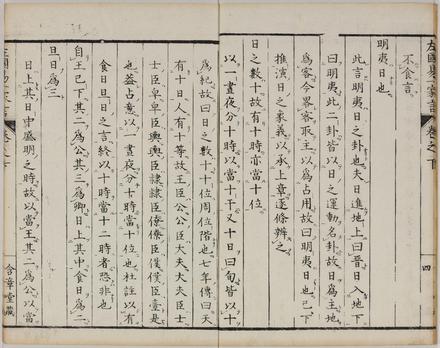 左國易象言 卷之下
不食言
明夷日也
此言明夷日之卦也夫日進地上曰晉日入地下
曰明夷此二卦皆以日之運動名卦故日爲主地
爲客今畧客取主以爲占用故曰明夷日也已下
推演日之象義以承上章逐條辨之
日之數十故有十時亦當十位
以一晝夜分十時以當十干又十日曰旬皆以十
爲紀故曰日之數十十位周位階也七年傳曰天
有十日人有十等故王臣公公臣大夫大夫臣士
士臣皁皁臣輿輿臣隸隸臣僚僚臣僕僕臣臺是
也蓋占意以一晝夜分十時當十位也杜註以有
食日旦日之言終以十時當十二時者恐非也
自王已下其二爲公其三爲卿日上其中食日爲二
旦日爲三
日上其日中盛明之時故以當王其二爲公以當
四
卷之下
含章堂藏